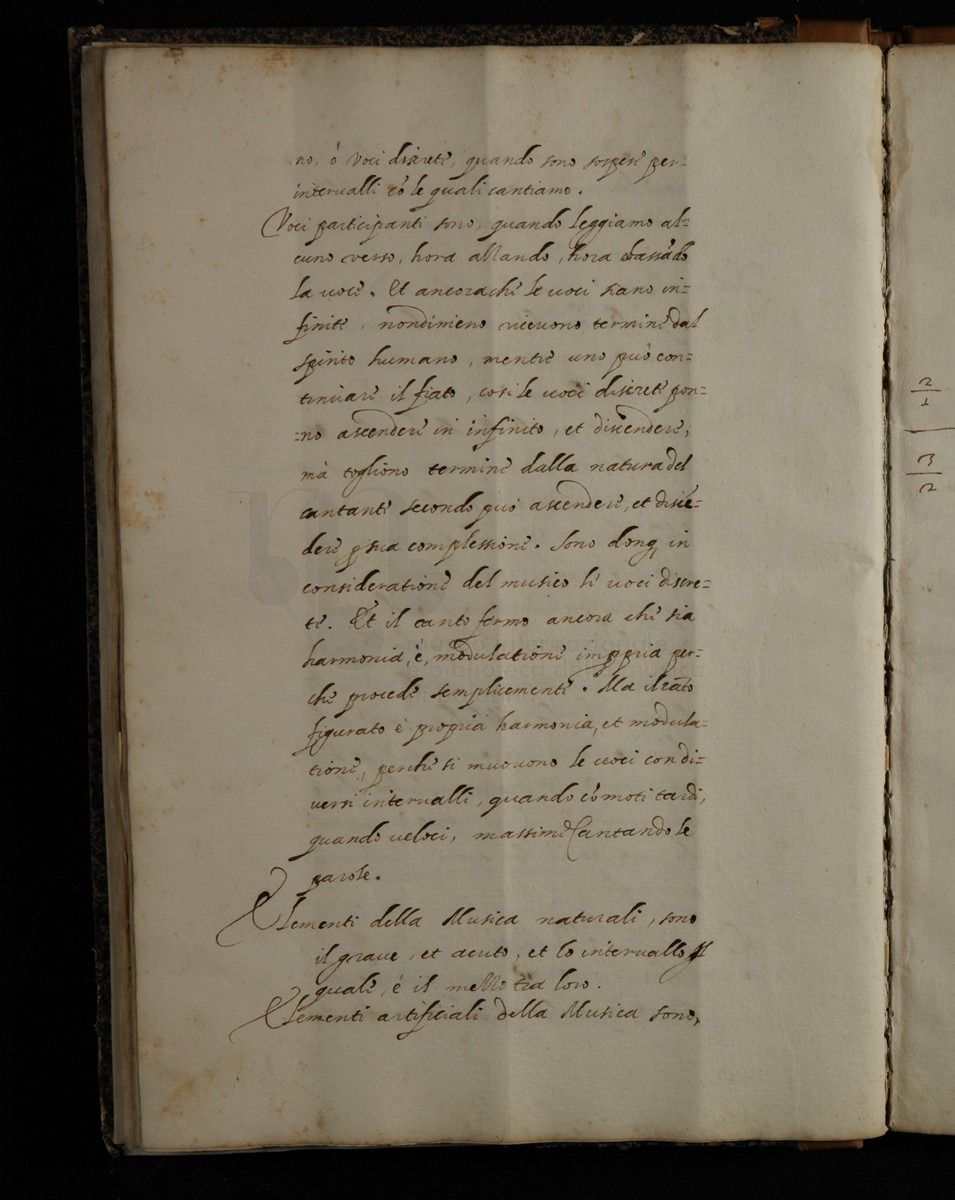 no, ò Voci discrete, quando sono sospese per-
intervalli cō le quali cantiamo.
Voci participanti sono, quando leggiamo al=
cuno verso, hora alzando, hora abassādo
la voce. Et ancorache le voci siano in=
finite, nondimeno ricevono termine dal
spirito humano, mentre uno può con=
tinuare il fiato, così le voci discrete pon=
=no ascendere in infinito, et discendere,
mà togliono termine dalla natura del
cantante secondo può ascendere, et discē-
dere p sua complessione. Sono donq, in
consideratione del musico le voci discre=
te. Et il canto fermo ancora che sia
harmonia, è, modulatione impropria per-
che procede semplicemente. Ma il cāto
figurato è propria harmonia, et modula=
tione, perche si muovono le voci con di=
versi intervalli, quando cō moti tardi,
quando veloci, massime Cantando le
parole.
Elementi della Musica naturali, sono
il grave, et acuto, et lo intervallo, il
quale, è il mezzo tra loro.
Elementi artificiali della Musica sono,
2
1
3
2